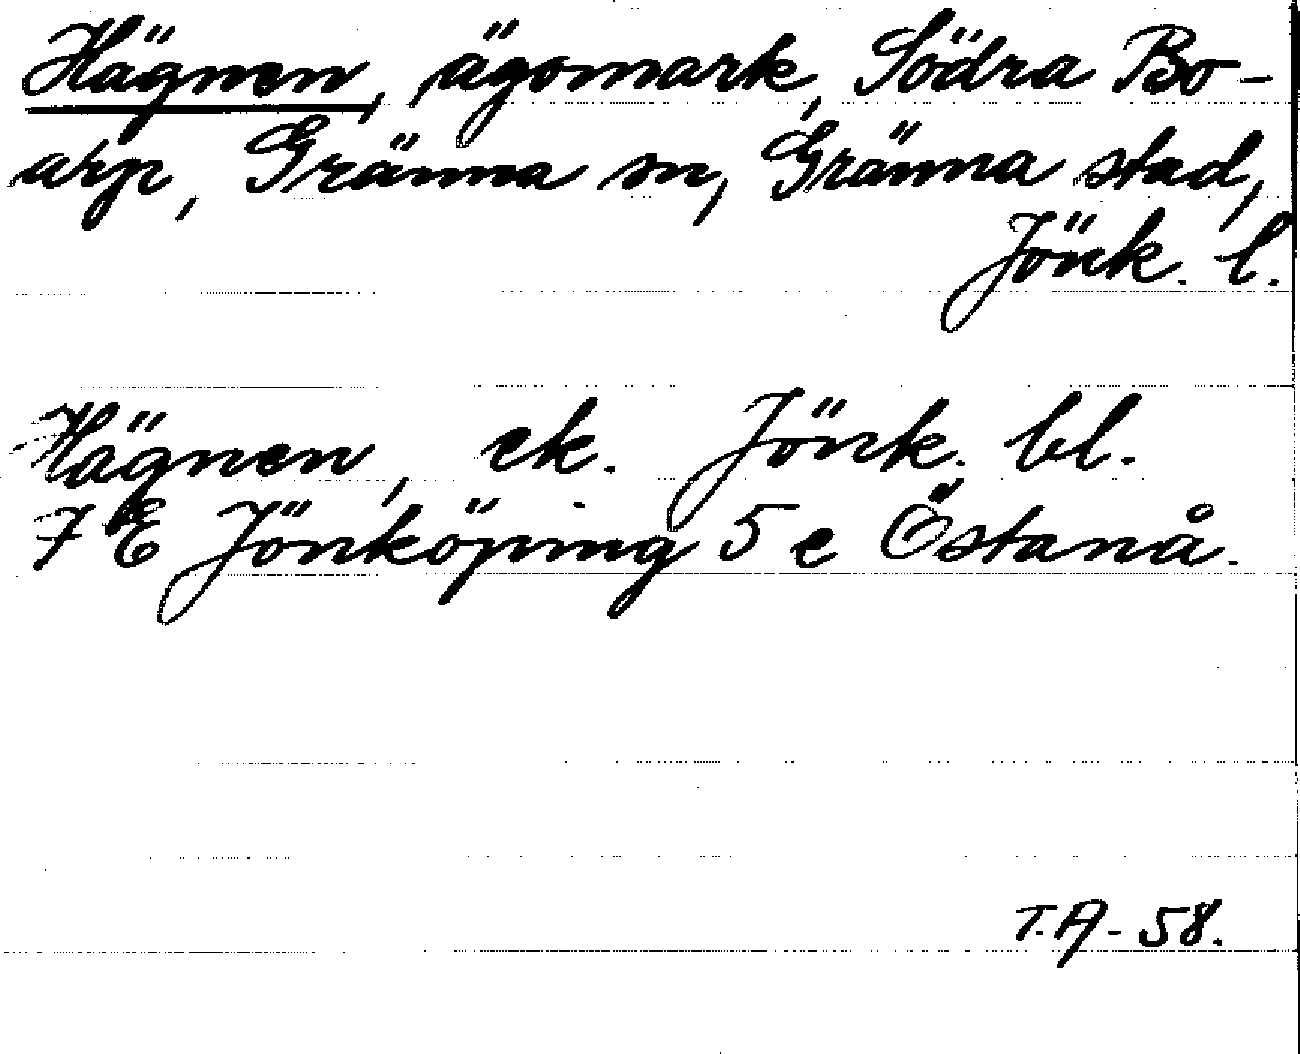 Hägnen, ägomark, Södra Bo-
arp, Gränna sn, Gränna stad,
Jönk. l.
Hägnen, ek. Jönk. bl.
7 E Jönköping 5 e Östanå.
T.A-58.